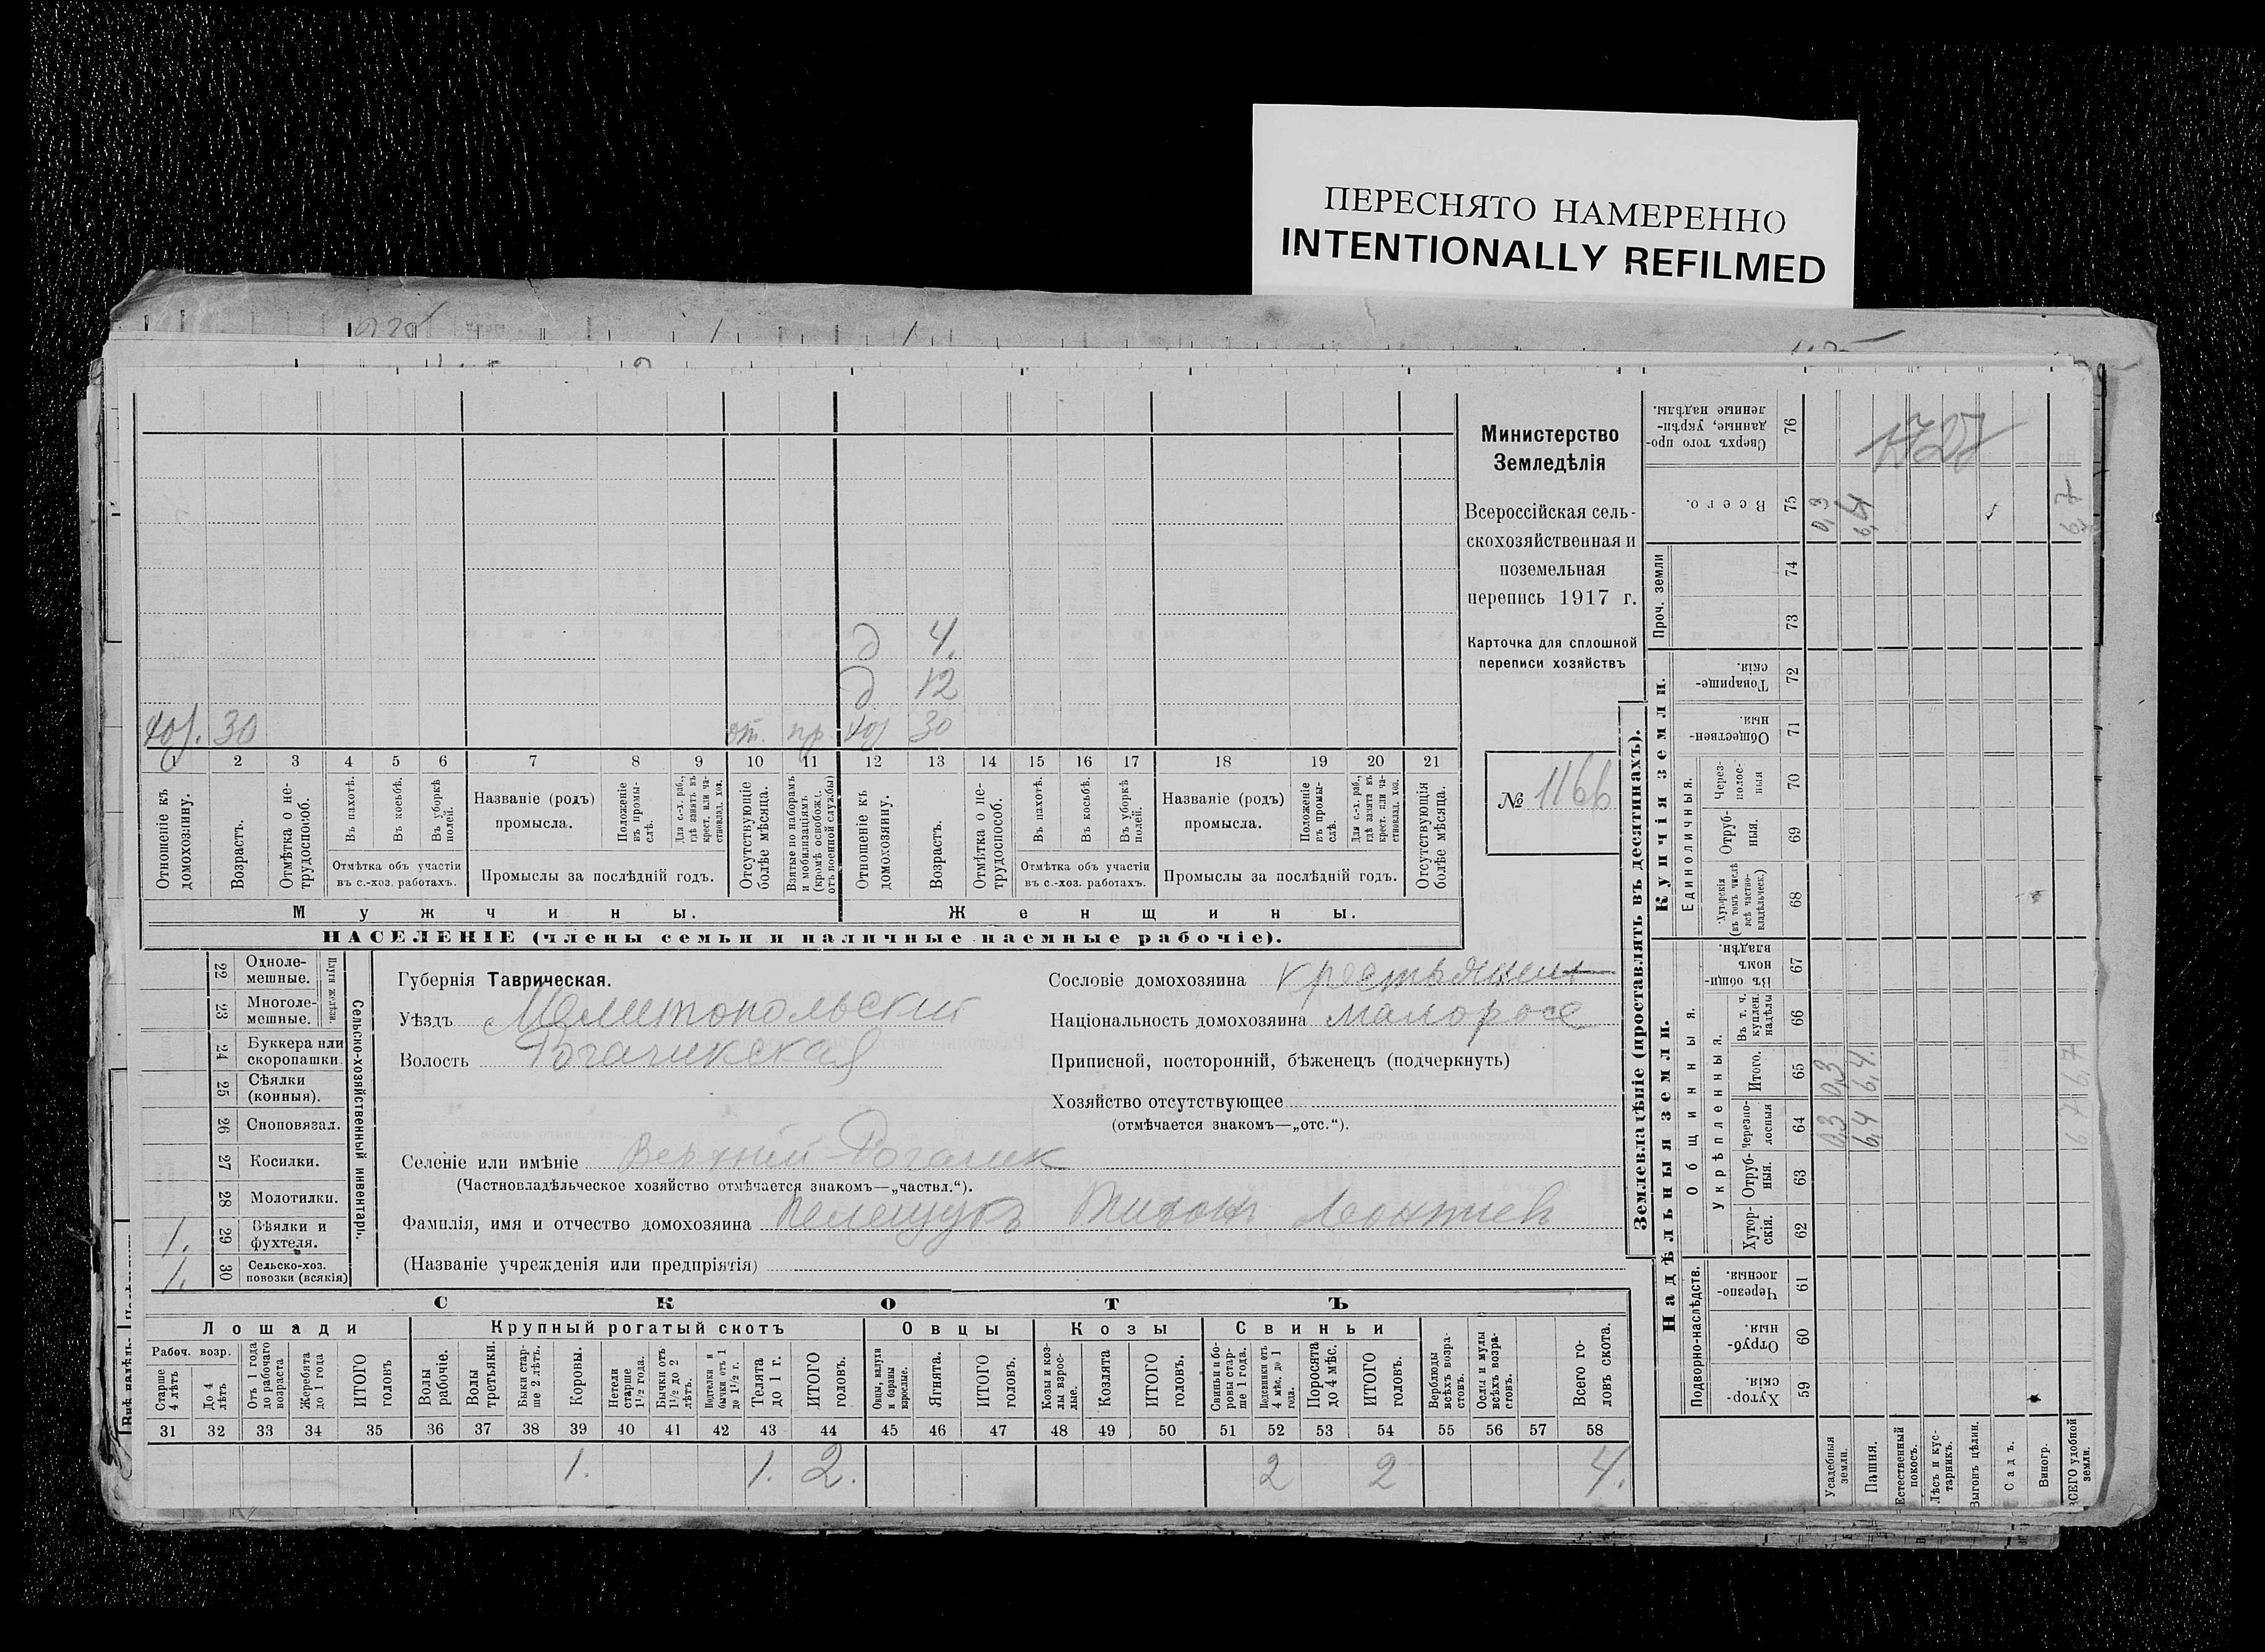 ПЕРЕСНЯТО НАМЕРЕННО
INTENTIONALLY REFILMED
Министерство
Земледѣлія
Всероссійская сель-
скохозяйственная и
поземельная
перепись 1917 г.
Карточка для сплошной
переписи хозяйствъ
№ 1166
д 4.
д 12
30 от. пр. 30
1 2 3 4 5 6 7 8 9 10 11 12 13 14 15 16 17 18 19 20 21
Отношеніе къ домохозяину.
Возрастъ.
Отмѣтка о не-трудоспособ.
Въ пахотѣ.
Въ косьбѣ.
Въ уборкѣ полей.
Отмѣтка объ участіи въ с.-хоз. работахъ.
Названіе (родъ) промысла.
Положеніе въ промы-слѣ.
Для с.-х. раб., гдѣ занятъ въ крест. или ча-стновлад. хоз.
Промыслы за послѣдній годъ.
Отсутствующіе болѣе мѣсяца.
Взятые по наборамъ и мобилизаціямъ (кромѣ освобожд. отъ военной службы)
Отношеніе къ домохозяину.
Возрастъ.
Отмѣтка о не-трудоспособ.
Въ пахотѣ.
Въ косьбѣ.
Въ уборкѣ полей.
Отмѣтка объ участіи въ с.-хоз. работахъ.
Названіе (родъ) промысла.
Положеніе въ промы-слѣ.
Для с.-х. раб., гдѣ занята въ крест. или ча-стновлад. хоз.
Промыслы за послѣдній годъ.
Отсутствующія болѣе мѣсяца.
Мужчины. Женщины.
НАСЕЛЕНІЕ (члены семьи и наличные наемные рабочіе).
Сельско-хозяйственный инвентарь.
Плуги желѣзн.
22 Одноле-мешные.
23 Многоле-мешные.
24 Буккера или скоропашки.
25 Сѣялки (конныя).
26 Сноповязал.
27 Косилки.
28 Молотилки.
1. 29 Вѣялки и фухтеля.
1. 30 Сельско-хоз. повозки (всякія)
Губернія Таврическая.
Уѣздъ Мелитопольский
Волость Рогачикская
Селеніе или имѣніе Верхний-Рогачик
(Частновладѣльческое хозяйство отмѣчается знакомъ—„частвл.“).
Фамилія, имя и отчество домохозяина
(Названіе учрежденія или предпріятія)
Сословіе домохозяина крестьянин
Національность домохозяина малоросс
Приписной, посторонній, бѣженецъ (подчеркнуть)
Хозяйство отсутствующее
(отмѣчается знакомъ—„отс.“).
СКОТЪ
Лошади Крупный рогатый скотъ Овцы Козы Свиньи
Рабоч. возр.
Старше 4 лѣтъ
До 4 лѣтъ
Отъ 1 года до рабочаго возраста
Жеребята до 1 года
ИТОГО головъ
Волы рабочіе.
Волы третьяки.
Быки стар-ше 2 лѣтъ.
Коровы.
Нетели старше 1½ года.
Бычки отъ 1½ до 2 лѣтъ.
Подтелки и бычки отъ 1 до 1½ г.
Телята до 1 г.
ИТОГО головъ.
Овцы, валухи и бараны взрослые.
Ягнята.
ИТОГО головъ.
Козы и коз-лы взрос-лые.
Козлята
ИТОГО головъ.
Свиньи и бо-ровы стар-ше 1 года.
Подсвинки отъ 4 мѣс. до 1 года.
Поросята до 4 мѣс.
ИТОГО головъ.
Верблюды всѣхъ возра-стовъ.
Ослы и мулы всѣхъ возра-стовъ.
Всего го-ловъ скота.
31 32 33 34 35 36 37 38 39 40 41 42 43 44 45 46 47 48 49 50 51 52 53 54 55 56 57 58
1. 1. 2. 2 2 4.
Землевладѣніе (проставлять въ десятинахъ).
Надѣльныя земли.
Купчія земли.
Проч. земли
Подворно-наслѣдств.
Общинныя.
Укрѣпленныя.
Единоличныя.
Хутор-скія. 59
Отруб-ныя. 60
Черезпо-лосныя. 61
Хутор-скія. 62
Отруб-ныя. 63
Черезпо-лосныя 64
Итого. 65
Въ т. ч. куплен. надѣлы 66
Въ общин-номъ владѣн. 67
Хуторскія (въ томъ числѣ всѣ частно-владѣльческ.) 68
Отруб-ныя. 69
Через-полос-ныя 70
Обществен-ныя. 71
Товарище-скія. 72
73
74
Всего. 75
Сверхъ того про-данные, укрѣп-ленные надѣлы. 76
Усадебныя земли. 0,3 0,3 0,3
Пашня. 6,4 6,4. 6,4
Естественный покосъ.
Лѣсъ и кус-тарникъ.
Выгонъ цѣлин.
Садъ.
Виногр.
ВСЕГО удобной земли. 6,7 6,7 6,7